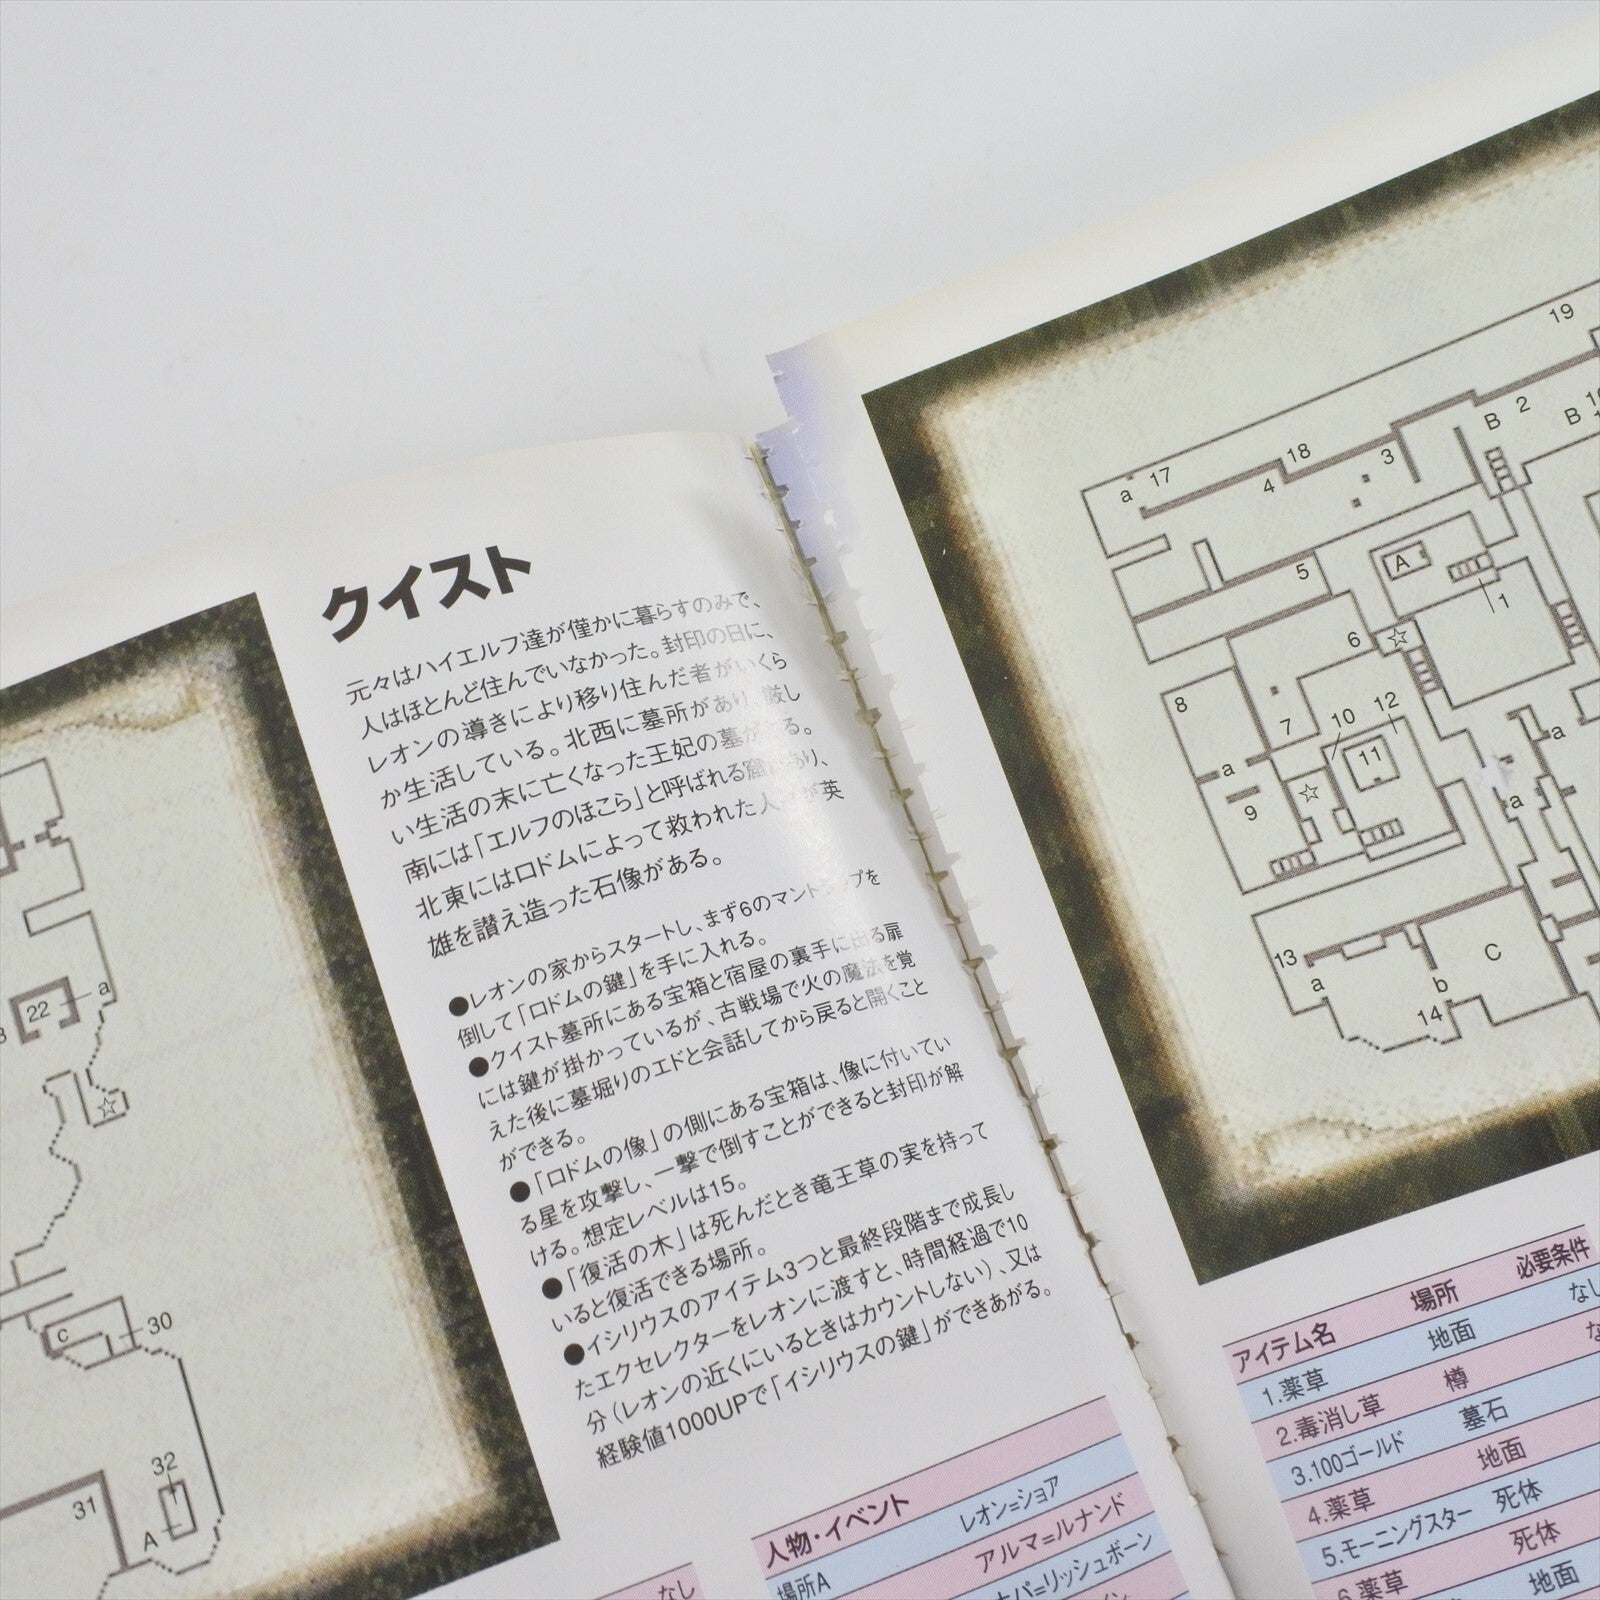 クイスト
元々はハイエルフ達が僅かに暮らすのみで、
人はほとんど住んでいなかった。封印の日に、
レオンの導きにより移り住んだ者がいくら
か生活している。北西に墓所があり、厳し
い生活の末に亡くなった王妃の墓がある。
南には「エルフのほこら」と呼ばれる窟があり、
北東にはロドムによって救われた人々が英
雄を讃え造った石像がある。
●レオンの家からスタートし、まず6のマントラップを
倒して「ロドムの鍵」を手に入れる。
●クイスト墓所にある宝箱と宿屋の裏手に出る扉
には鍵が掛かっているが、古戦場で火の魔法を覚
えた後に墓堀りのエドと会話してから戻ると開くこと
ができる。
●「ロドムの像」の側にある宝箱は、像に付いてい
る星を攻撃し、一撃で倒すことができると封印が解
ける。想定レベルは15。
●「復活の木」は死んだとき竜王草の実を持って
いると復活できる場所。
●イシリウスのアイテム3つと最終段階まで成長し
たエクセレクターをレオンに渡すと、時間経過で10
分（レオンの近くにいるときはカウントしない）、又は
経験値1000UPで「イシリウスの鍵」ができあがる。
人物・イベント
場所A レオン=ショア
アルマ=ルナンド
パ=リッシュボーン
なし
22 a
☆
c 30
31
32
A
19
a 17
18
4
3
B 2
B
A
5
1
6 ☆
8
7
10
12
11
a
9
☆
a
a
13
a
b
C
14
アイテム名 場所 必要条件
1.薬草 地面 なし
2.毒消し草 樽
3.100ゴールド 墓石
4.薬草 地面
5.モーニングスター 死体
6.薬草 死体
地面